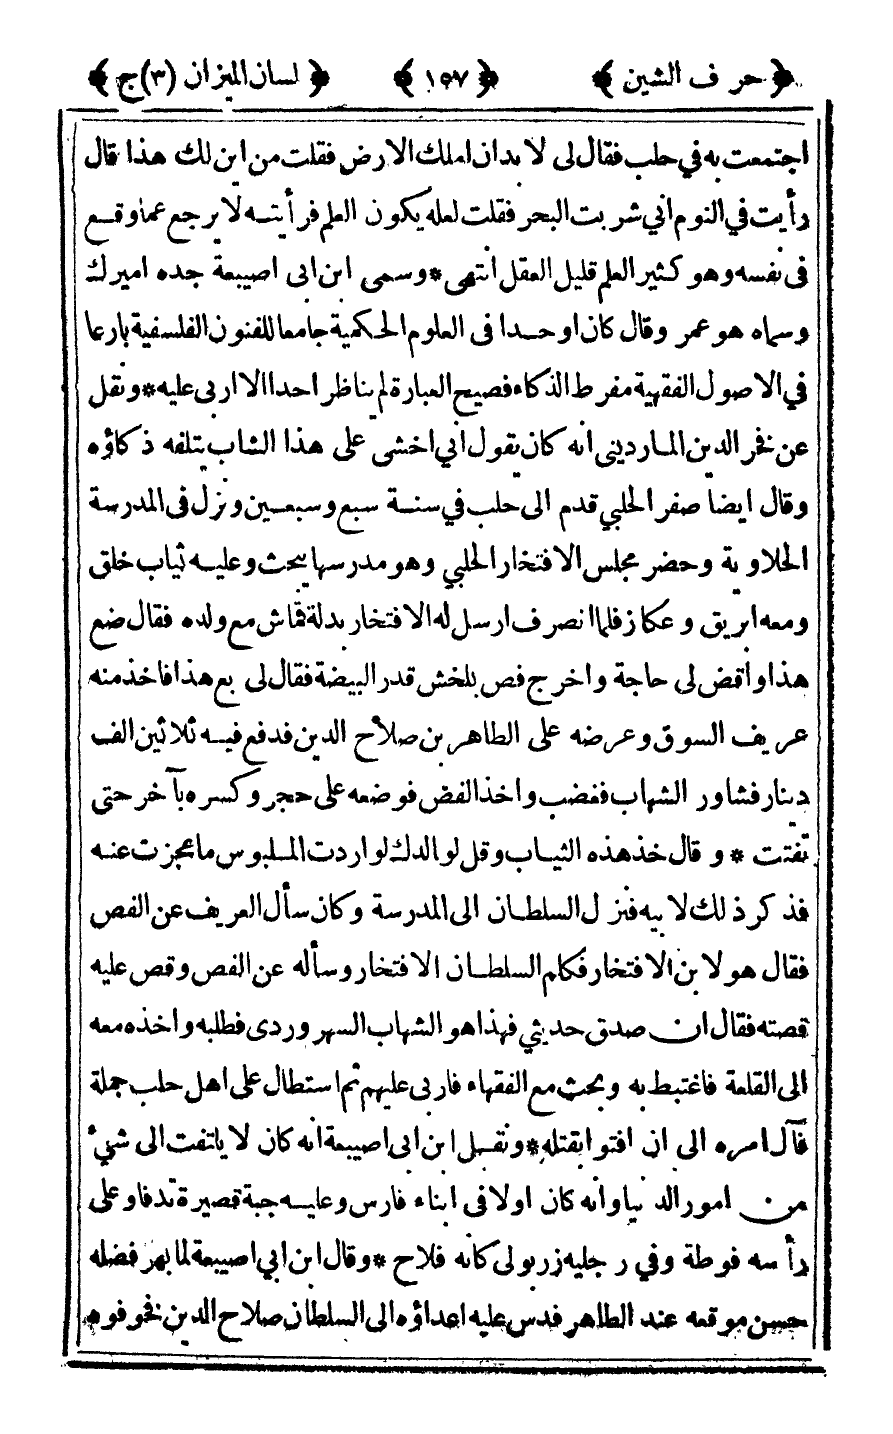 ﴿ حرف الشين ﴾ ﴿ ١٥٧ ﴾ ﴿ لسان الميزان (٣)ج ﴾
اجتمعت به في حلب فقال لى لا بد ان املك الارض فقلت من اين لك هذا قال
رأيت في النوم اني شربت البحر فقلت لعله يكون العلم فرأيته لا يرجع عما وقع
فى نفسه وهو كثير العلم قليل العقل انتهى * وسمى ابن ابى اصيبعة جده اميرك
وسماه هو عمر وقال كان اوحدا فى العلوم الحكمية جامعا للفنون الفلسفية بارعا
في الاصول الفقهية مفرط الذكاء فصيح العبارة لم يناظر احدا الا اربى عليه * ونقل
عن فخر الدين الماردينى انه كان يقول اني اخشى على هذا الشاب يتلفه ذكاؤه
وقال ايضا صفر الحلبي قدم الى حلب في سنة سبع وسبعين ونزل فى المدرسة
الحلاوية وحضر مجلس الافتخار الحلبي وهو مدرسها يبحث وعليه ثياب خلق
ومعه ابريق وعكاز فلما انصرف ارسل له الافتخار بدلة قماش مع ولده فقال ضع
هذا واقض لى حاجة واخرج فص بلخش قدر البيضة فقال لى بع هذا فاخذ منه
عريف السوق وعرضه على الطاهر بن صلاح الدين فدفع فيه ثلاثين الف
دينار فشاور الشهاب فغضب واخذ الفض فوضعه على حجر وكسره بآخر حتى
تفتت * وقال خذ هذه الثياب وقل لوالدك لو اردت الملبوس ما عجزت عنه
فذكر ذلك لابيه فنزل السلطان الى المدرسة وكان سأل العريف عن الفص
فقال هو لابن الافتخار فكلم السلطان الافتخار وسأله عن الفص وقص عليه
قصته فقال ان صدق حديثي فهذا هو الشهاب السهروردى فطلبه واخذه معه
الى القلعة فاغتبط به وبحث مع الفقهاء فاربى عليهم ثم استطال على اهل حلب جملة
فآل امره الى ان افتوا بقتله * ونقل ابن ابى اصيبعة انه كان لا يلتفت الى شئ
من امور الدنيا وانه كان اولا فى ابناء فارس وعليه جبة قصيرة تدفا وعلى
رأسه فوطة وفي رجليه زربولى كانه فلاح * وقال ابن ابي اصيبعة لما بهر فضله
حسن موقعه عند الطاهر فدس عليه اعداؤه الى السلطان صلاح الدين فخوفوه